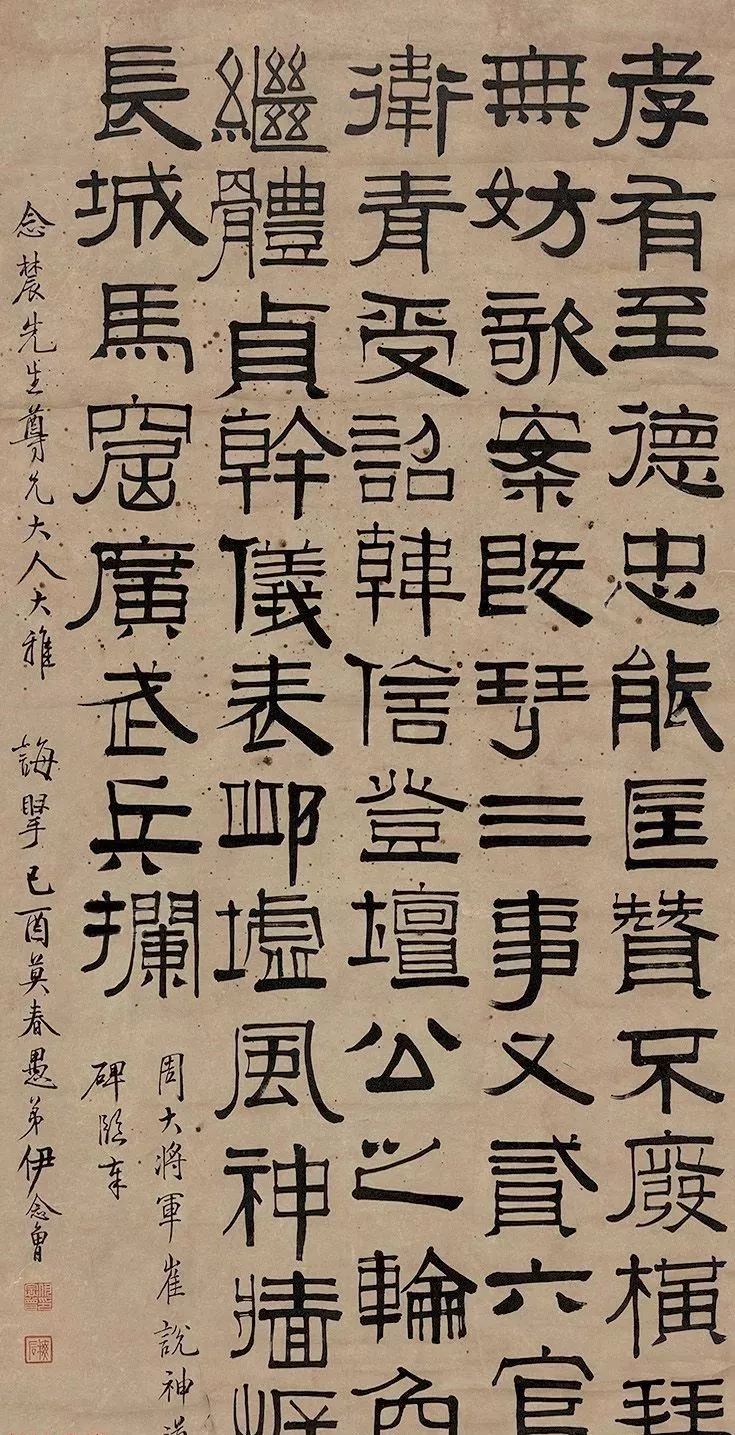 孝有至德忠能匡贊不廢橫
無妨歌案既三事又貳六官
衛青受詔韓信登壇公之輪奂
繼體貞幹儀表邱墟風神牆岸
長城馬窟廣武兵攔
周大將軍崔說神道
碑臨奉
念辳先生尊兄大人大雅 誨 己酉莫春愚弟伊念曾